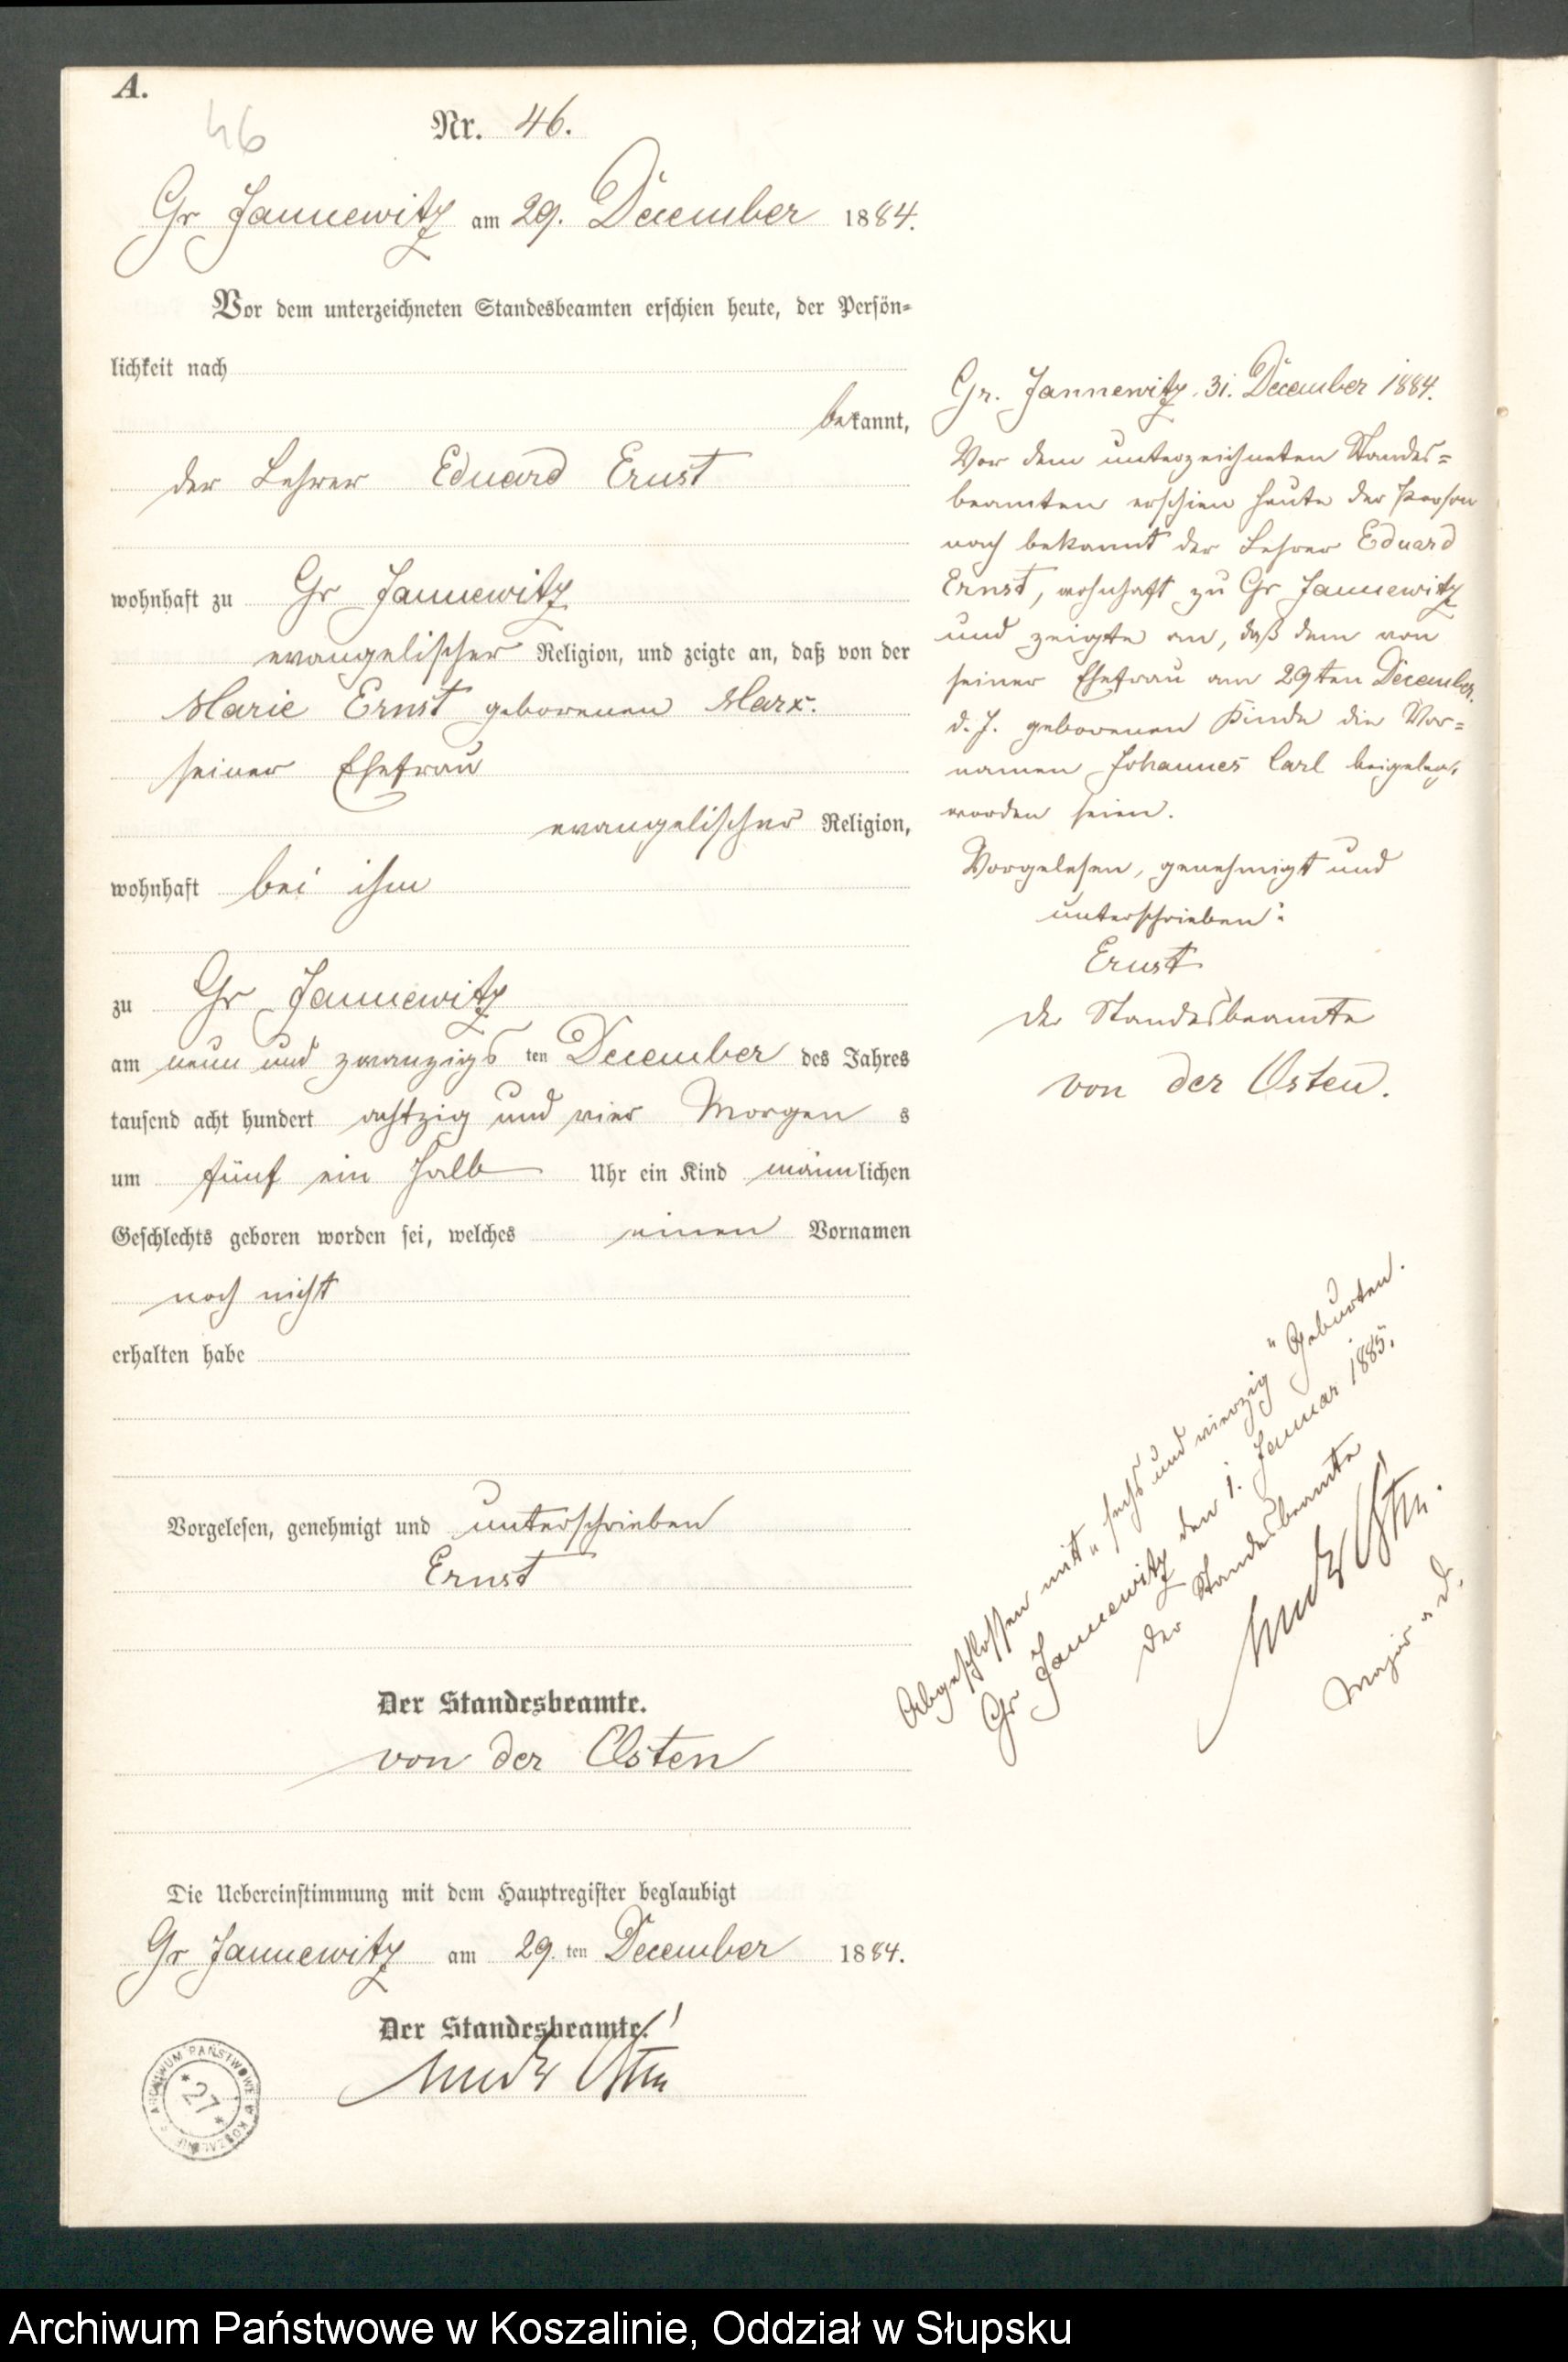 A.
46
Nr. 46.
Gr Jannewitz am 29. December 1884.
Vor dem unterzeichneten Standesbeamten erschien heute, der Persön=
lichkeit nach
bekannt,
der Lehrer Eduard Ernst
wohnhaft zu Gr Jannewitz
evangelischer Religion, und zeigte an, daß von der
Marie Ernst geborenen Marx.
seiner Ehefrau
evangelischer Religion,
wohnhaft bei ihm
zu Gr Jannewitz
am neun und zwanzigs ten December des Jahres
tausend acht hundert achtzig und vier Morgen s
um fünf ein halb Uhr ein Kind männlichen
Geschlechts geboren worden sei, welches einen Vornamen
noch nicht
erhalten habe
Vorgelesen, genehmigt und unterschrieben
Ernst
Der Standesbeamte.
von der Osten
Die Uebereinstimmung mit dem Hauptregister beglaubigt
Gr Jannewitz am 29. ten December 1884.
Der Standesbeamte.
von der Osten
ARCHIWUM PAŃSTWOWE W KOSZALINIE
* 27 *
Gr. Jannewitz. 31. December 1884.
Vor dem unterzeichneten Standes=
beamten erschien heute der Person
nach bekannt der Lehrer Eduard
Ernst, wohnhaft zu Gr Jannewitz
und zeigte an, daß dem von
seiner Ehefrau am 29ten December
d. J. geborenen Kinde die Vor=
namen Johannes Carl beigelegt
worden seien.
Vorgelesen, genehmigt und
unterschrieben:
Ernst
der Standesbeamte
von der Osten.
Abgeschlossen mit "sechs und vierzig" Geburten.
Gr Jannewitz den 1. Januar 1885.
der Standesbeamte
von der Osten.
Major a. d.
Archiwum Państwowe w Koszalinie, Oddział w Słupsku